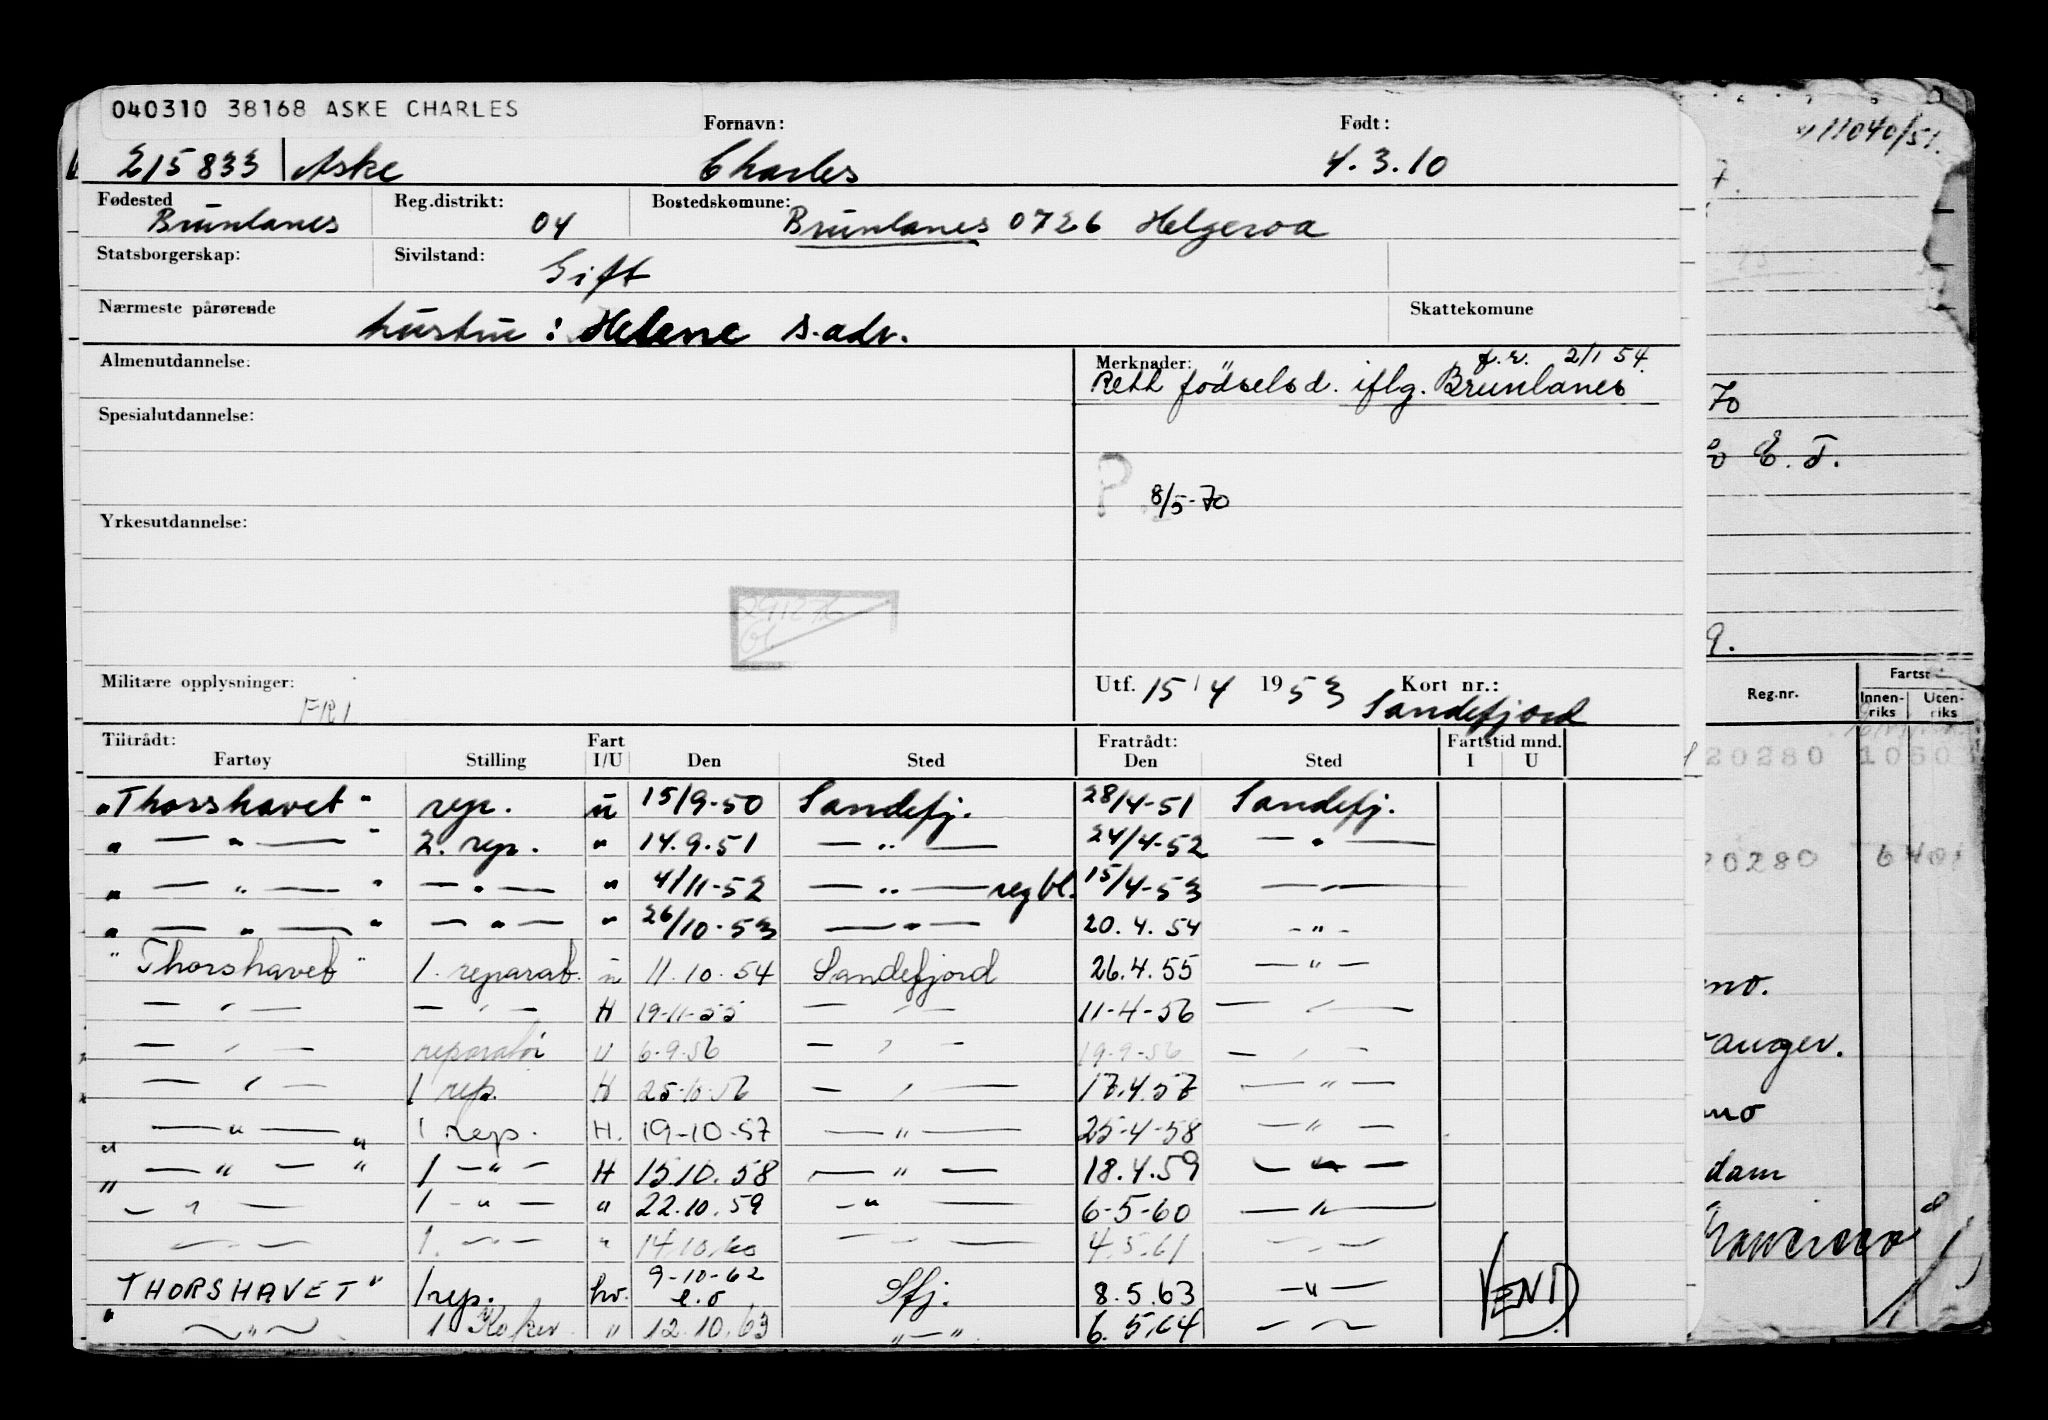 040310 38168 ASKE CHARLES
Fornavn: Født:
11040/51.
215833 Aske Charles 4.3.10
7.
Fødested Reg.distrikt: Bostedskomune:
Brunlanes 04 Brunlanes 0726 Helgeroa
Statsborgerskap: Sivilstand:
Gift
Nærmeste pårørende Skattekomune
hustru: Helene s.adr.
Almenutdannelse: Merknader: f.r. 2/1 54.
Rett fødselsd. iflg. Brunlanes
70
Spesialutdannelse:
E. T.
P 8/5-70
Yrkesutdannelse:
291276
9.
Militære opplysninger: Utf. 15/4 1953 Kort nr.:
FRI Sandefjord
Reg.nr. Fartst
Innen- riks Uten- riks
Tiltrådt: Fart Fratrådt: Fartstid mnd.
Fartøy Stilling I/U Den Sted Den Sted I U
20280 10503
"Thorshavet" rep. u 15/9-50 Sandefj. 28/4-51 Sandefj.
" — " — " 2. rep. " 14.9.51 — " — 24/4-52 — " —
20280 640
" — " — " — " — " 4/11-52 — " — reg bl. 15/4-53 — " —
" — " — " — " — " 26/10-53 — " — 20.4.54 - " -
"Thorshavet" 1. reparat. u 11.10.54 Sandefjord 26.4.55 — " —
— " — — " — H 19-11-55 — " — 11-4-56 — " —
— " — reparatør U 6-9-56 — " — 19-9-56 — " —
auger.
— " — 1 rep. H 25-10-56 — " — 17.4.57 — " —
" — " — " 1 rep. H. 19-10-57 — " — 25-4-58 — " —
" — " — " 1 - " - H 15.10.58 — " — 18.4.59 — " —
dam
— " — 1 - " - " 22.10.59 - " — 6-5-60 — " —
— " — 1. — " — " 14.10.60 — " — 4.5.61 — " —
Francisco
"THORSHAVET" 1 rep. hv. 9-10-62 e.o Sfj. 8.5.63 — " — VEND
" — " — 1 Koker " 12.10.63 " — " 6.5.64 — " —